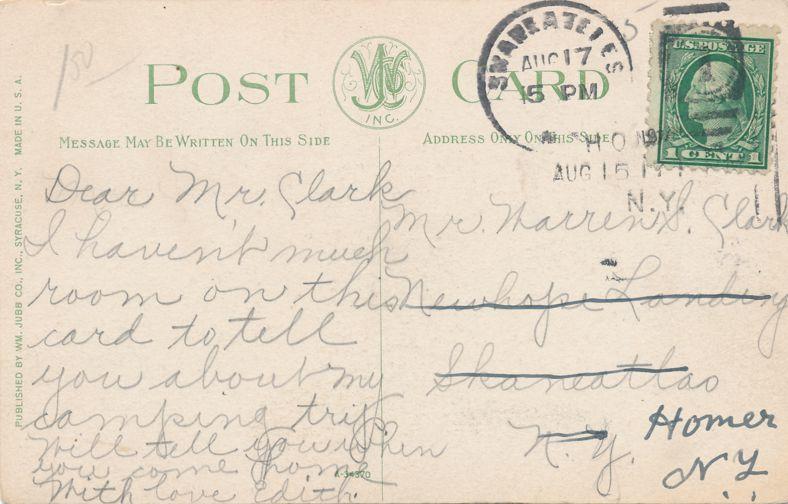 150
5
POST CARD
WJ Co
INC.
SKANEATELES
AUG 17
5 PM
U.S. POSTAGE
1 CENT 1
MESSAGE MAY BE WRITTEN ON THIS SIDE
ADDRESS ONLY ON THIS SIDE
HO
AUG 15
N.Y.
PUBLISHED BY WM. JUBB CO., INC., SYRACUSE, N. Y. MADE IN U. S. A.
Dear Mr. Clark
I haven't much
room on this
card to tell
you about my
camping trip
Will tell you when
you come home
With love Edith.
Mr. Warren S. Clark
Newhope Landing
Skaneatlas
N. Y.
Homer
N Y
A-34370